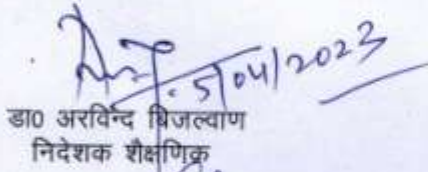 5/04/2023
डा0 अरविन्द बिजल्वाण
निदेशक शैक्षणिक